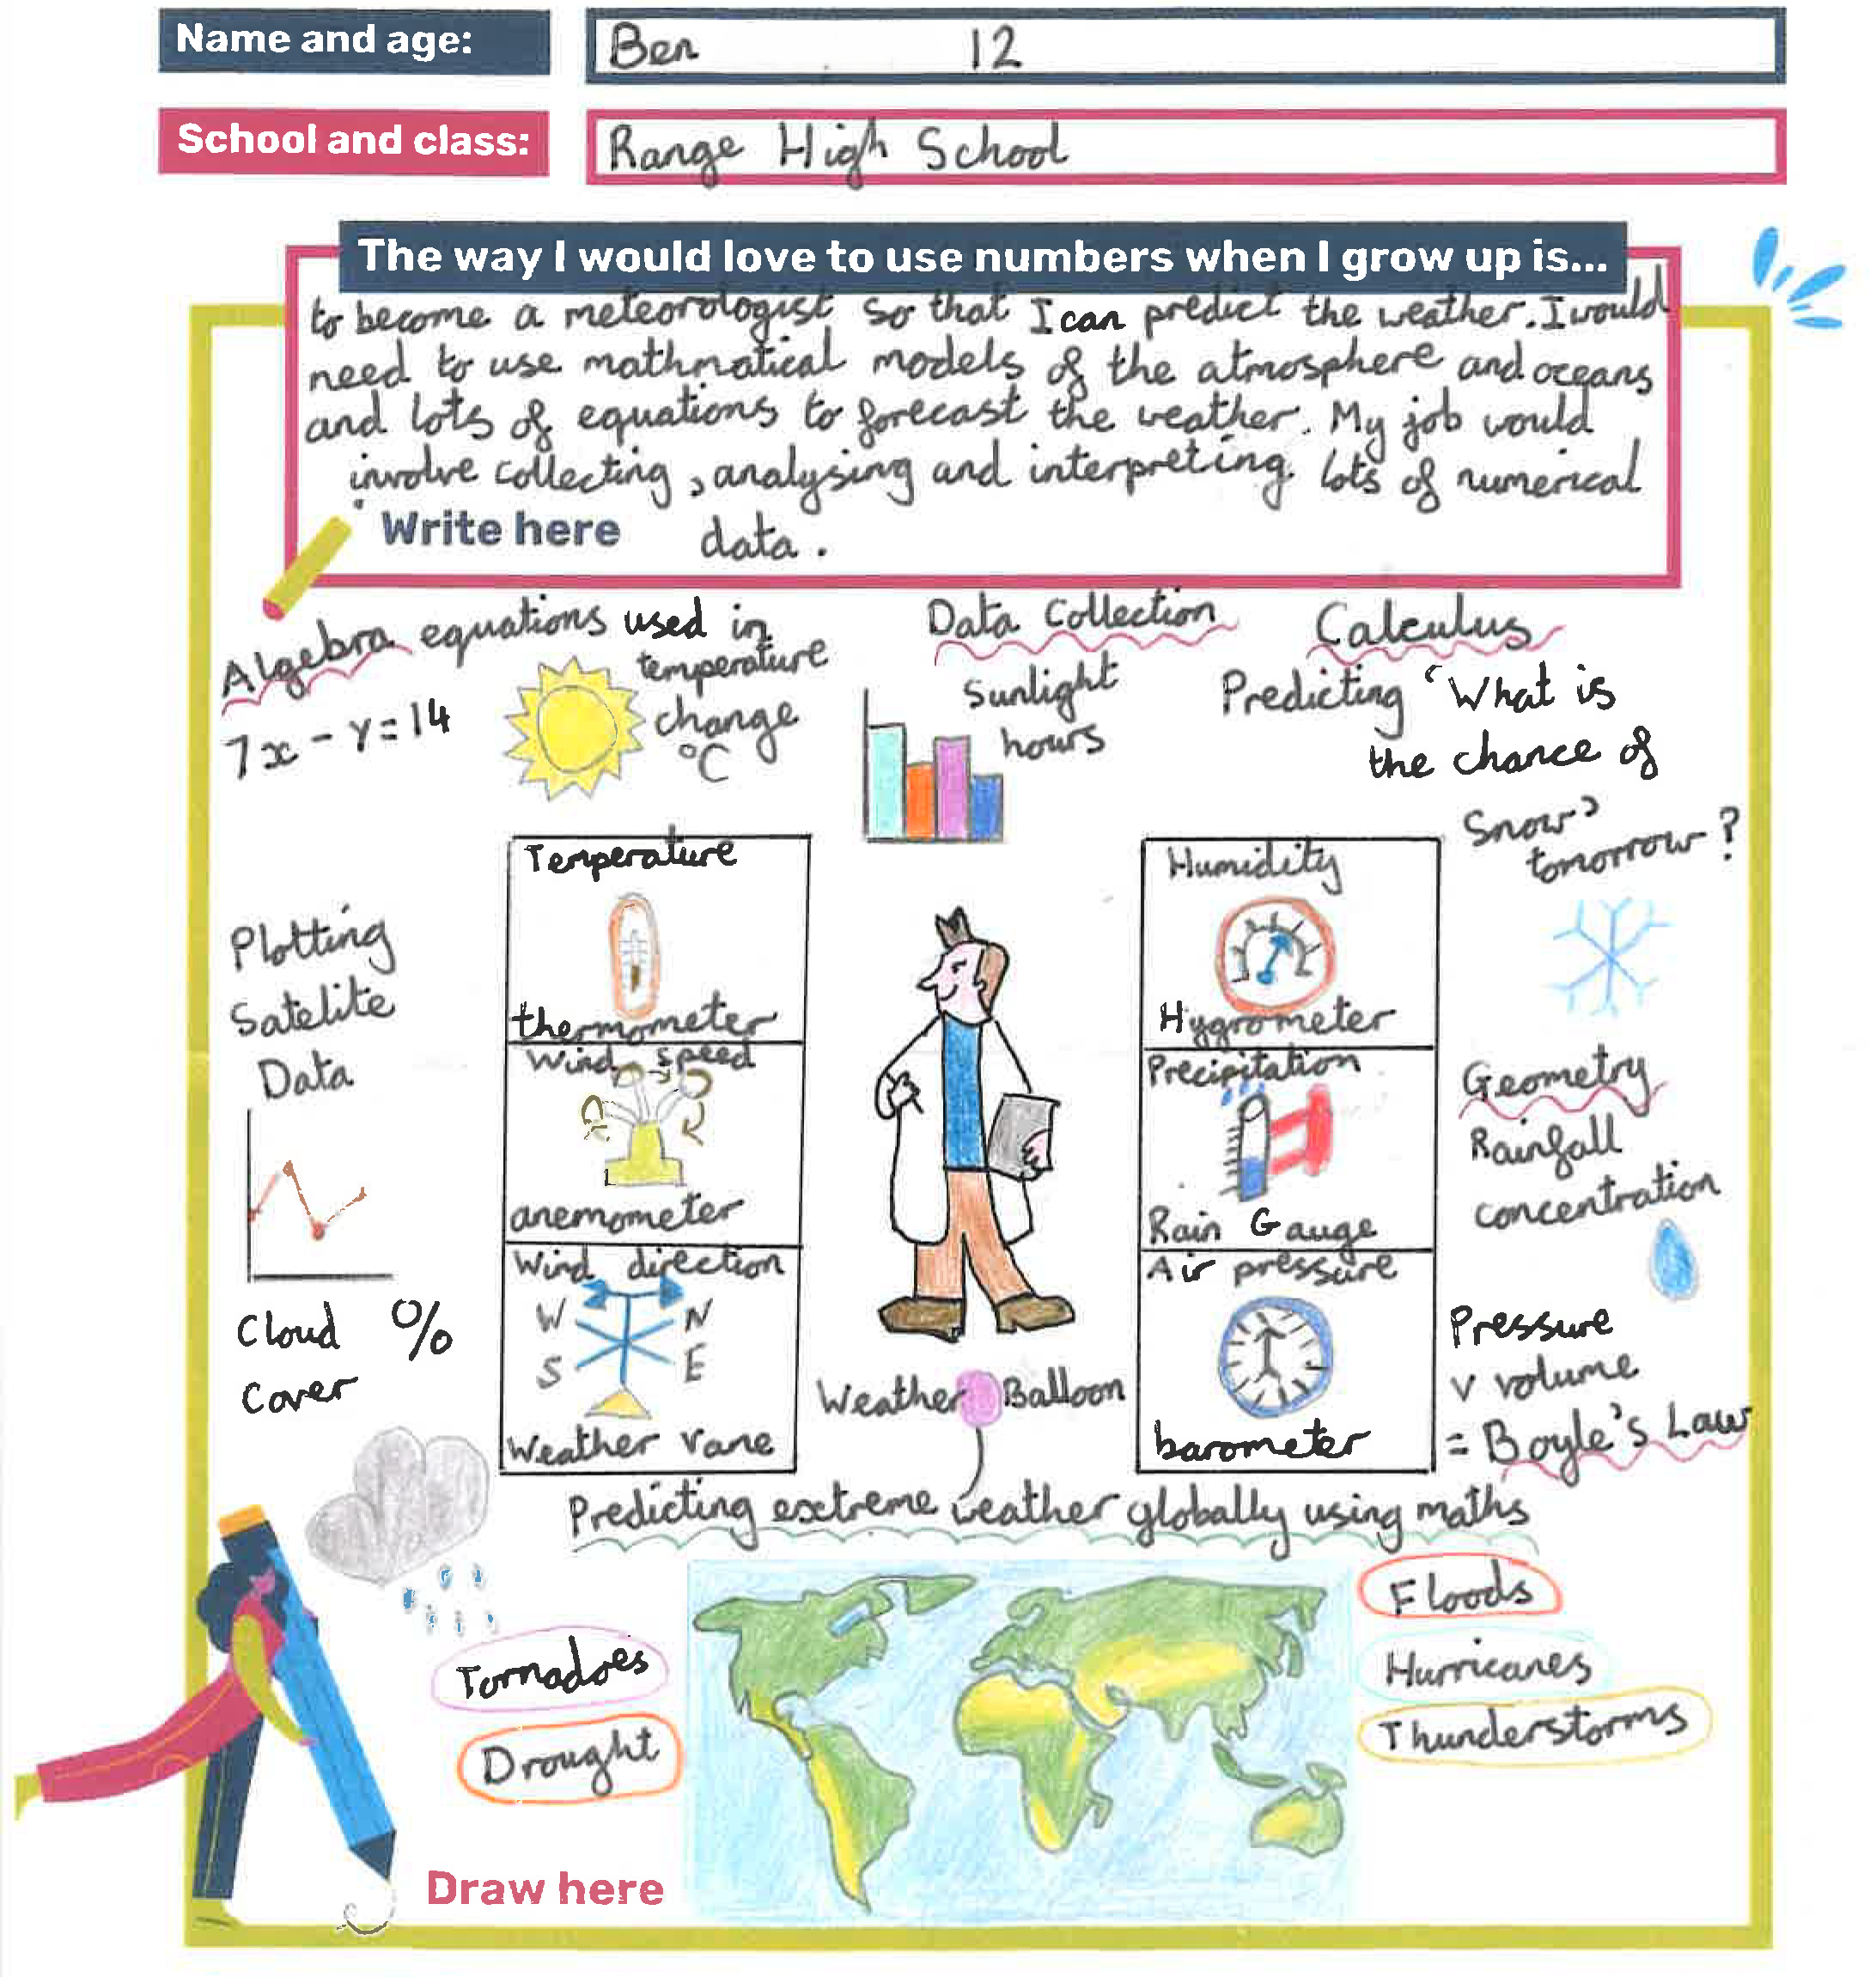 Name and age:
Ben 12
School and class:
Range High School
The way I would love to use numbers when I grow up is...
to become a meteorologist so that I can predict the weather. I would
need to use mathmatical models of the atmosphere and oceans
and lots of equations to forecast the weather. My job would
involve collecting, analysing and interpreting lots of numerical
Write here
data.
Algebra equations used in
temperature
change
°C
7x - y = 14
Data Collection
Sunlight
hours
Calculus
Predicting 'What is
the chance of
Snow'
tomorrow?
Plotting
Satelite
Data
Cloud %
Cover
Temperature
thermometer
Wind speed
anemometer
Wind direction
W N
S E
Weather Vane
Weather Balloon
Humidity
Hygrometer
Precipitation
Rain Gauge
Air pressure
barometer
Geometry
Rainfall
concentration
Pressure
v volume
= Boyle's Law
Predicting extreme weather globally using maths
Tornadoes
Drought
Floods
Hurricanes
Thunderstorms
Draw here